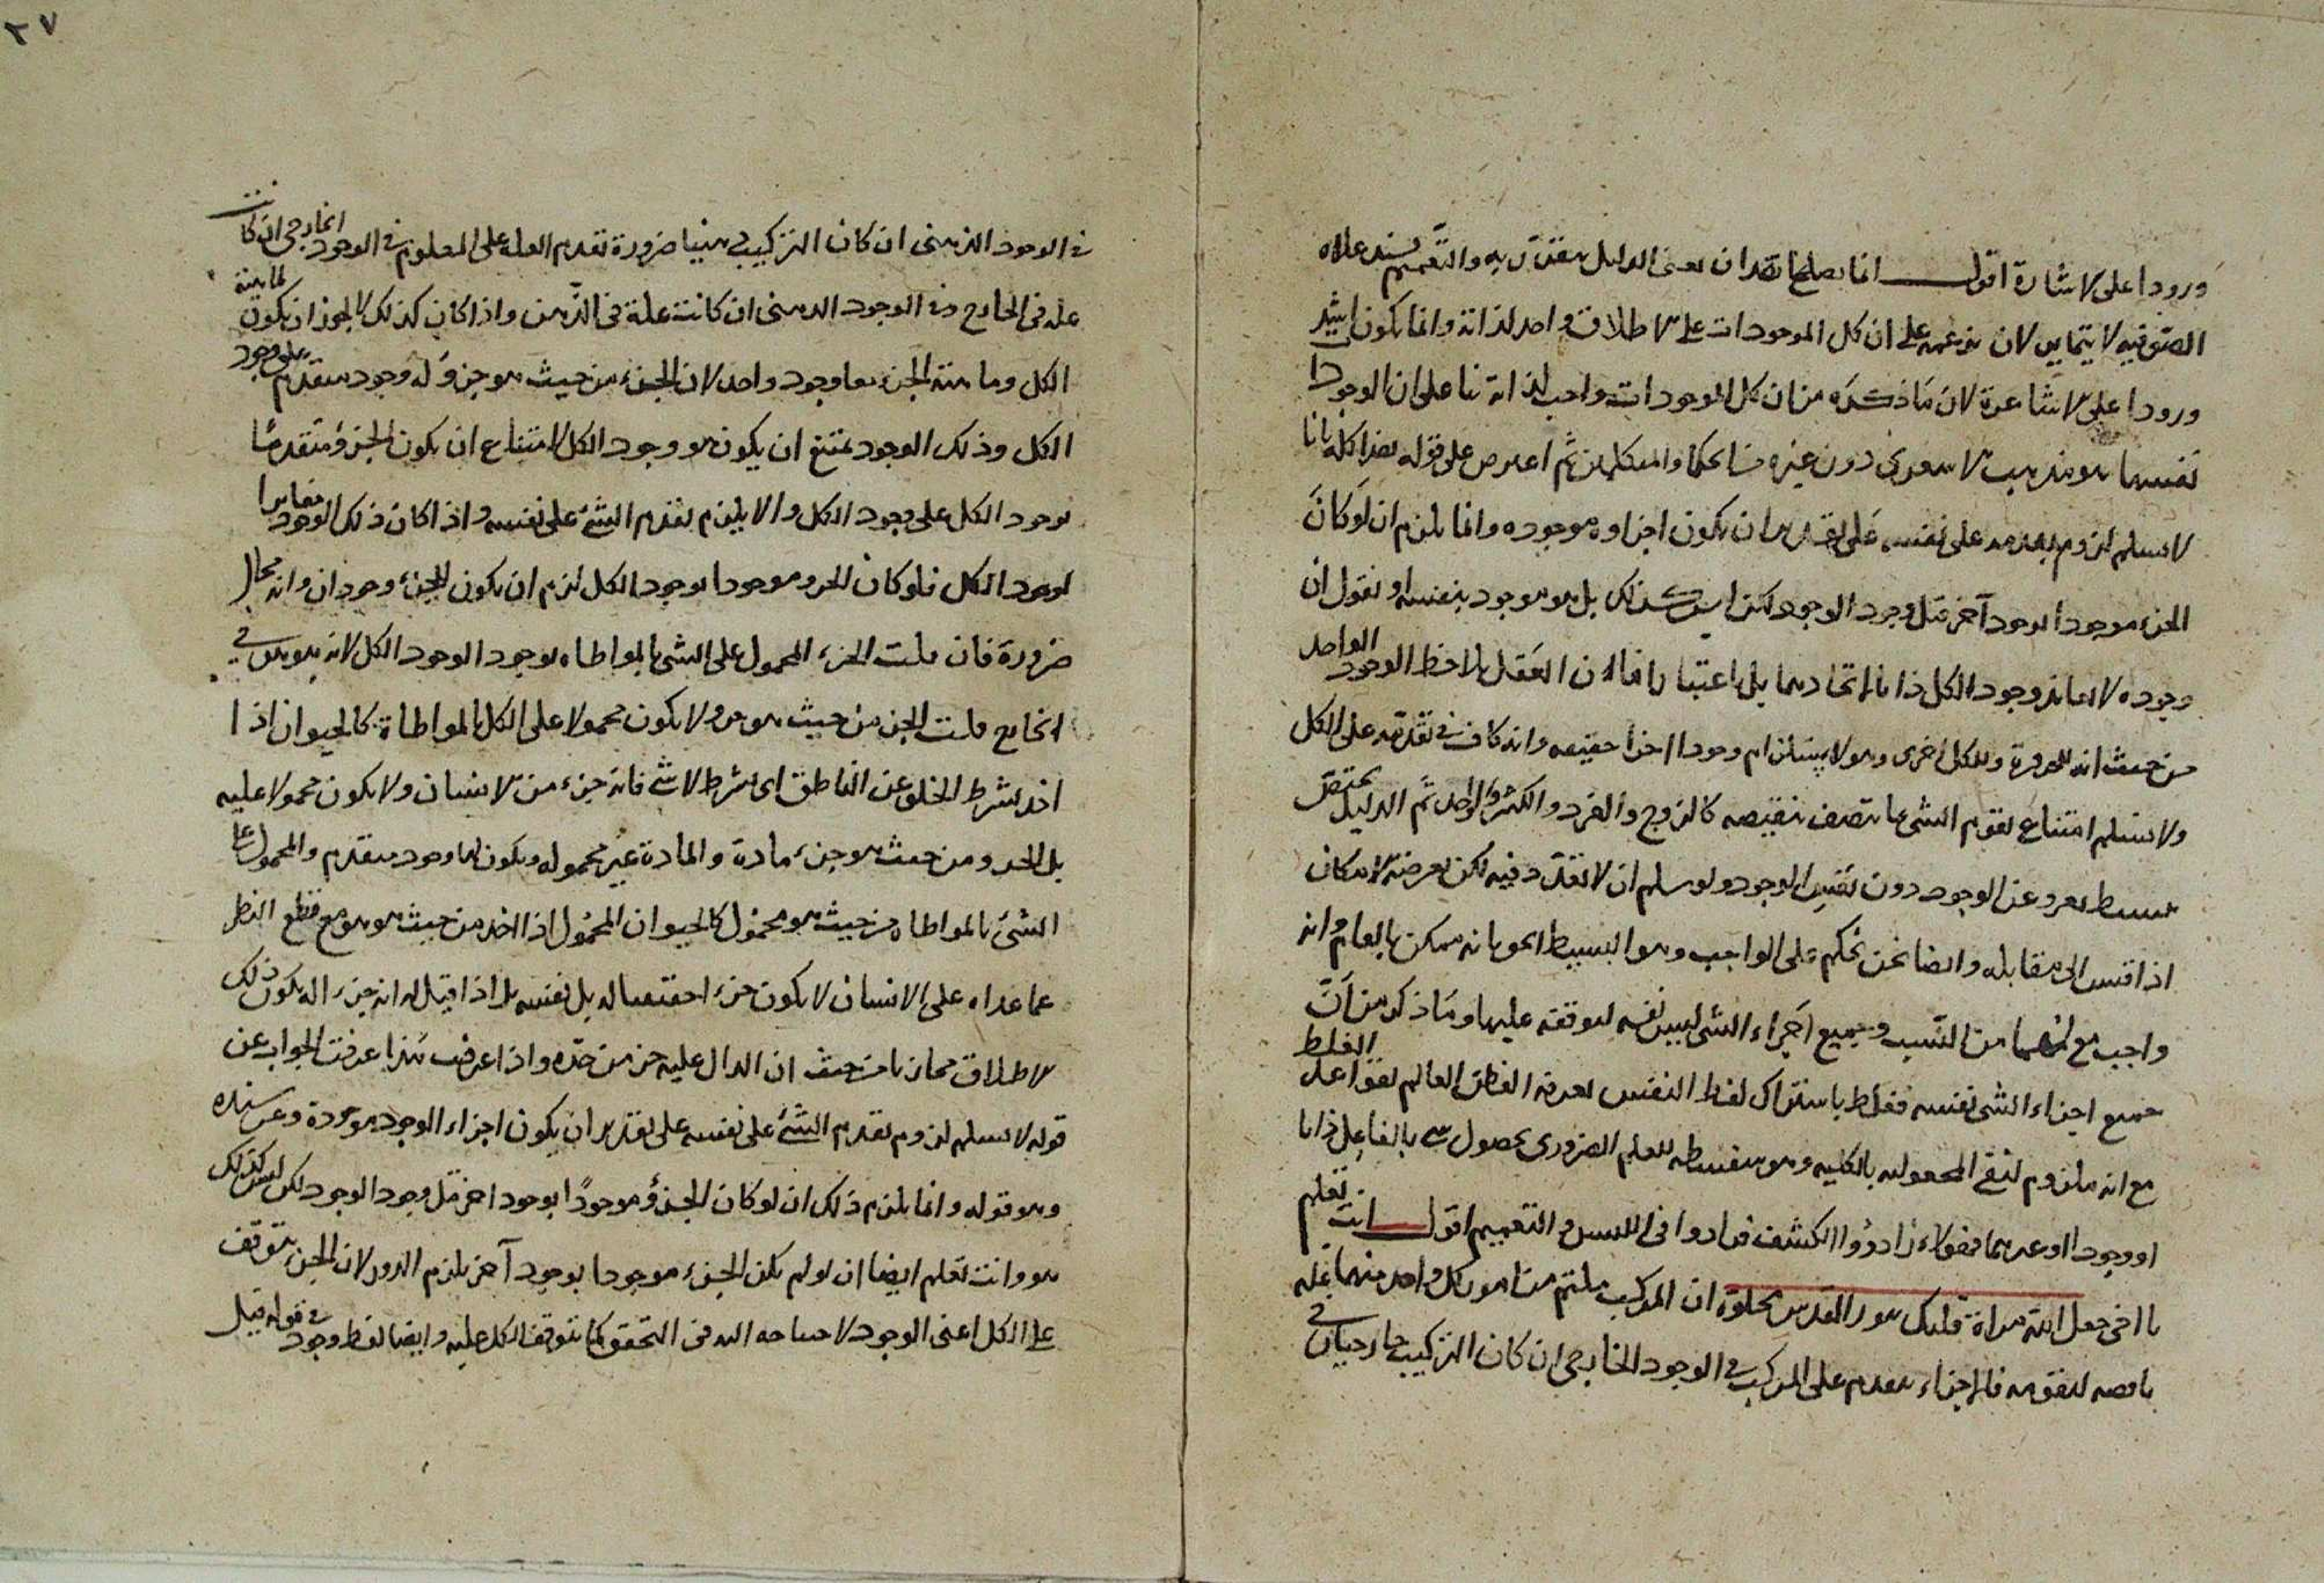 ورودا على الاشارة اقول انما يصلح ان يعنى الدليل والتعميم
الصوفيه لا لان على ان كل الموجودات على الاطلاق واحد لذاته وانما يكون
ورودا على الاشاعرة لان ما ذكره من ان كل الموجودات واجب لذاته بنا على ان الوجود
نفسها هو مذهب الاشعرى دون غيره من الحكما والمتكلمين ثم اعترض على قوله هذا كله بانا
لا نسلم لزوم تقدمه على نفسه على تقدير ان يكون اجزاوه موجوده وانما يلزم ان لو كان
الجزء موجودا بوجود آخر قبل وجود الوجود لكن ليس كذلك بل هو موجود بنفسه او نقول ان
وجوده لا يغاير وجود الكل ذاتا لاتحادهما بل اعتبارا فان العقل يلاحظ الوجود الواحد
من حيث انه للجزء مرة وللكل اخرى وهو لا يستلزم وجودا اخرا حقيقه وانه كاف فى تقدمه على الكل
ولا نسلم امتناع تقوم الشى بما يتصف بنقيضه كالزوج والفرد والكثرة والواحد ثم الدليل مختص
ببسيط يعرى عن الوجود دون نفس الوجود ولو سلم ان لا تعدد فيه لكن يعرضه الامكان
اذا قيس الى مقابله وايضا نحن نحكم على الواجب وهو البسيط الحق بانه ممكن بالعام وانه
واجب مع انهما من النسب وجميع اجزاء الشى ليس نفسه لتوقفه عليها وما ذكر من ان
جميع اجزاء الشى نفسه فغلط باشتراك لفظ النفس يعرفه الفطن العالم بقواعد الغلط
مع انه ملزوم لنفى المجعوليه بالكليه وهو سفسطه للعلم الضرورى بحصول شى بالفاعل ذاتا
او وجودا او غيرهما فهولاء زادوا الكشف فزادوا فى اللبس والتعميم اقول انت تعلم
يا اخى جعل الله مراة قلبك بنور القدس مجلوة ان المركب ملتئم من امور كل واحد منها علة
ناقصه لتقومه فالاجزاء تتقدم على المركب فى الوجود الخارجى ان كان التركيب خارجيا فى
٢٧
فى الوجود الذهنى ان كان التركيب ذهنيا ضرورة تقدم العله على المعلوم فى الوجود الخارجى ان كانت
علة فى الخارج وفى الوجود الذهنى ان كانت علة فى الذهن واذا كان كذلك لا يجوز ان يكون لماهية
الكل وماهية الجزء معا وجود واحد لان الجزء من حيث هو جزؤ له وجود متقدم على وجود
الكل وذلك الوجود يمتنع ان يكون هو وجود الكل لامتناع ان يكون الجزؤ متقدما
بوجود الكل على وجود الكل والا يلزم تقدم الشئ على نفسه واذا كان ذلك الوجود مغايرا
لوجود الكل فلو كان الجزو موجودا بوجود الكل لزم ان يكون للجزء وجودان وانه محال
ضرورة فان قلت الجزء المحمول على الشى بالمواطاه موجود الوجود الكل لانه هو هو فى
الخارج قلت الجزء من حيث هو جزو لا يكون محمولا على الكل بالمواطاة كالحيوان اذا
اخذ بشرط الخلو عن الناطق اى بشرط لا شى فانه جزء من الانسان ولا يكون محمولا عليه
بل الجزو من حيث هو جزء مادة والمادة غير محموله ويكون لها وجود متقدم والمحمول على
الشئ بالمواطاه من حيث هو محمول كالحيوان المحمول اذا اخذ من حيث هو هو مع قطع النظر
عما عداه على الانسان لا يكون جزءا حقيقيا له بل نفسه بل اذا قيل له انه جزء اله يكون ذلك
الاطلاق مجازيا من حيث ان الدال عليه جزء من حده واذا عرفت هذا عرفت الجواب عن
قوله لا نسلم لزوم تقدم الشئ على نفسه على تقدير ان يكون اجزاء الوجود موجودة وعن سنده
وهو قوله وانما يلزم ذلك ان لو كان الجزؤ موجودا بوجود اخر قبل وجود الوجود لكن ليس كذلك
هو وانت تعلم ايضا ان لو لم يكن الجزء موجودا بوجود آخر يلزم الدور لان الجزء يتوقف
على الكل اعنى الوجود لاحتياجه اليه فى التحقق كما يتوقف الكل عليه وايضا لفظ وجود فى قوله قبل